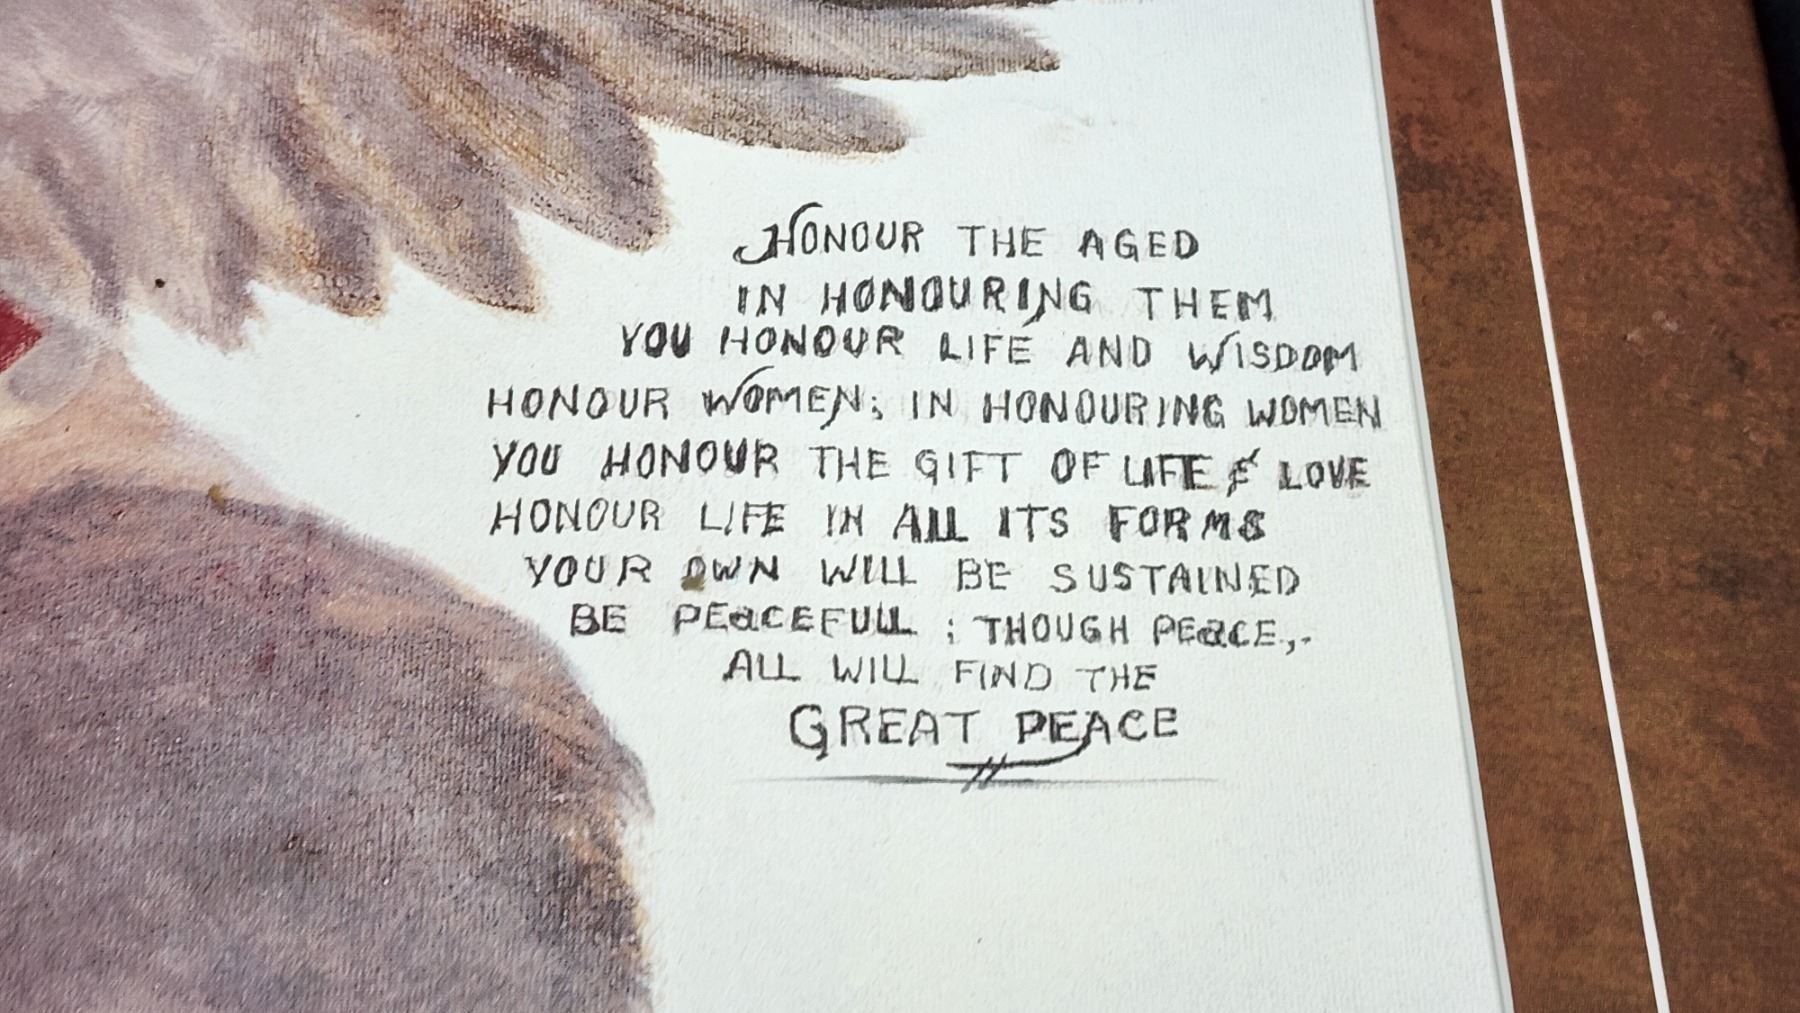 HONOUR THE AGED
IN HONOURING THEM
YOU HONOUR LIFE AND WISDOM
HONOUR WOMEN; IN HONOURING WOMEN
YOU HONOUR THE GIFT OF LIFE & LOVE
HONOUR LIFE IN ALL ITS FORMS
YOUR OWN WILL BE SUSTAINED
BE PEaCEFULL ; THOUGH PEaCE,.
ALL WILL FIND THE
GREAT PEACE